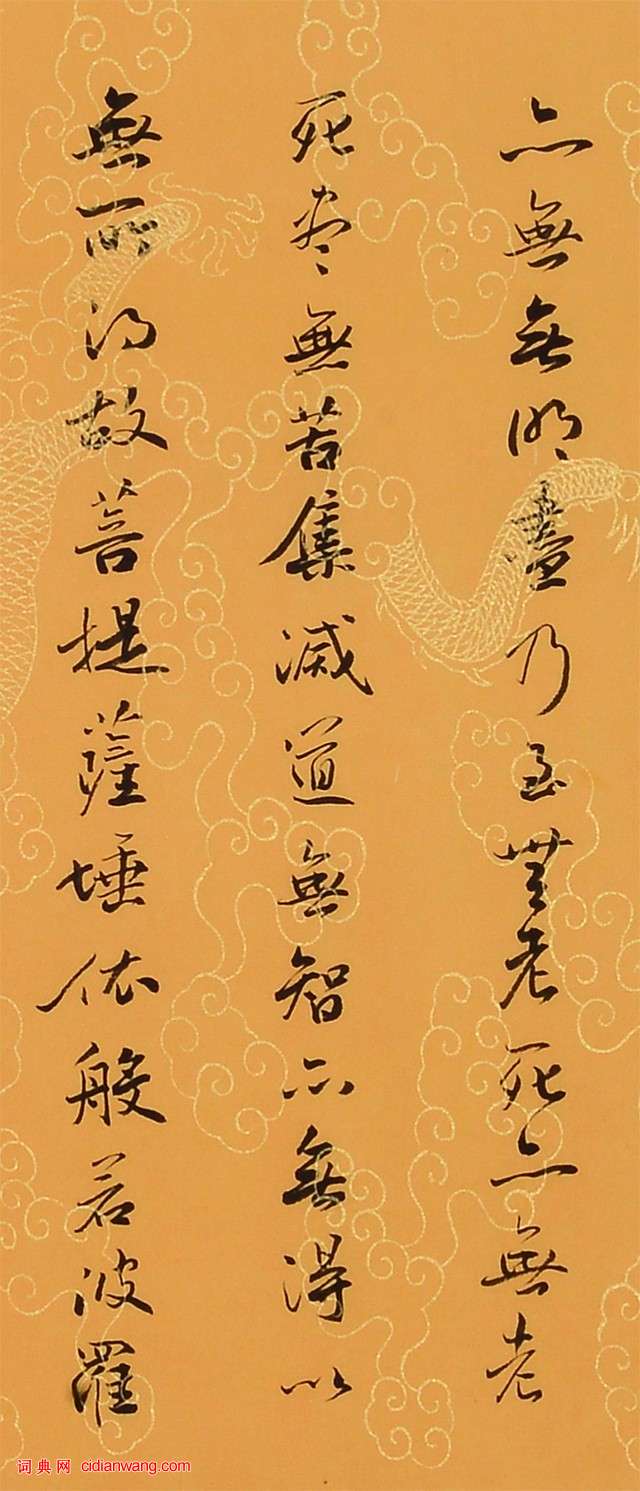 亦無無明盡乃至無老死亦無老
死尽無苦集滅道無智亦無得以
無所得故菩提薩埵依般若波羅
词典网 cidianwang.com